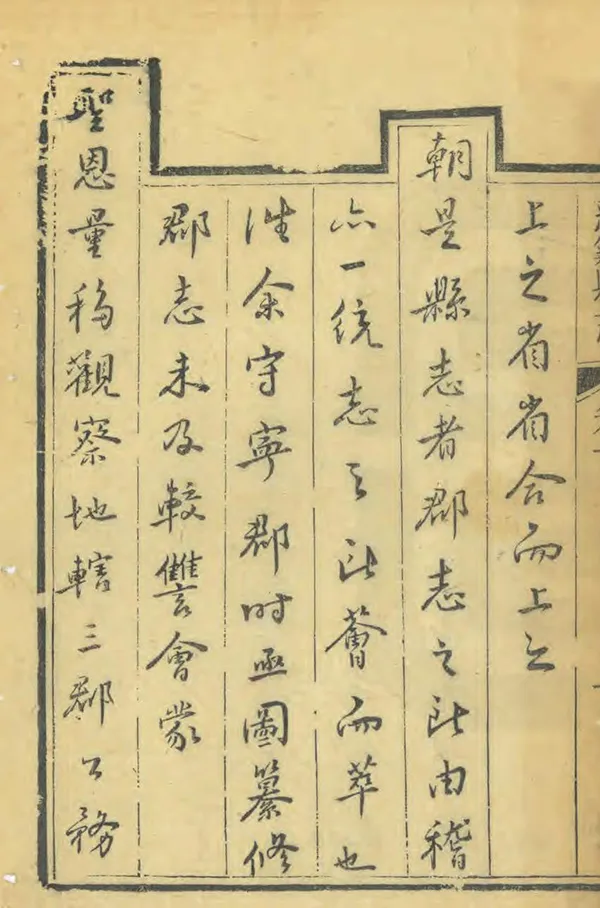 上之省省合而上之
朝是縣志者郡志之所由稽
亦一統志之所薈而萃也
惟余守寧郡時亟圖纂修
郡志未及較讐會蒙
聖恩量移觀察地轄三郡公務